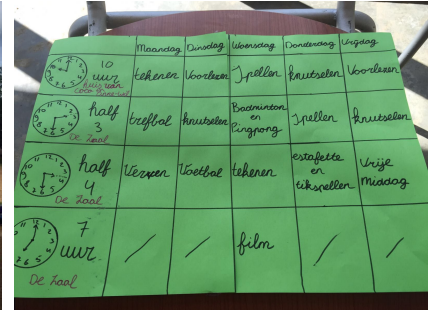 Maandag Dinsdag Woensdag Donderdag Vrijdag
10
uur
tekenen Voorlezen Spellen knutselen Voorlezen
half
3
De Zaal
trefbal knutselen Badminton
en
Pingpong
Spellen knutselen
half
4
De Zaal
Verven Voetbal tekenen estafette
en
tikspellen
Vrije
Middag
7
uur
De Zaal
/ / film / /